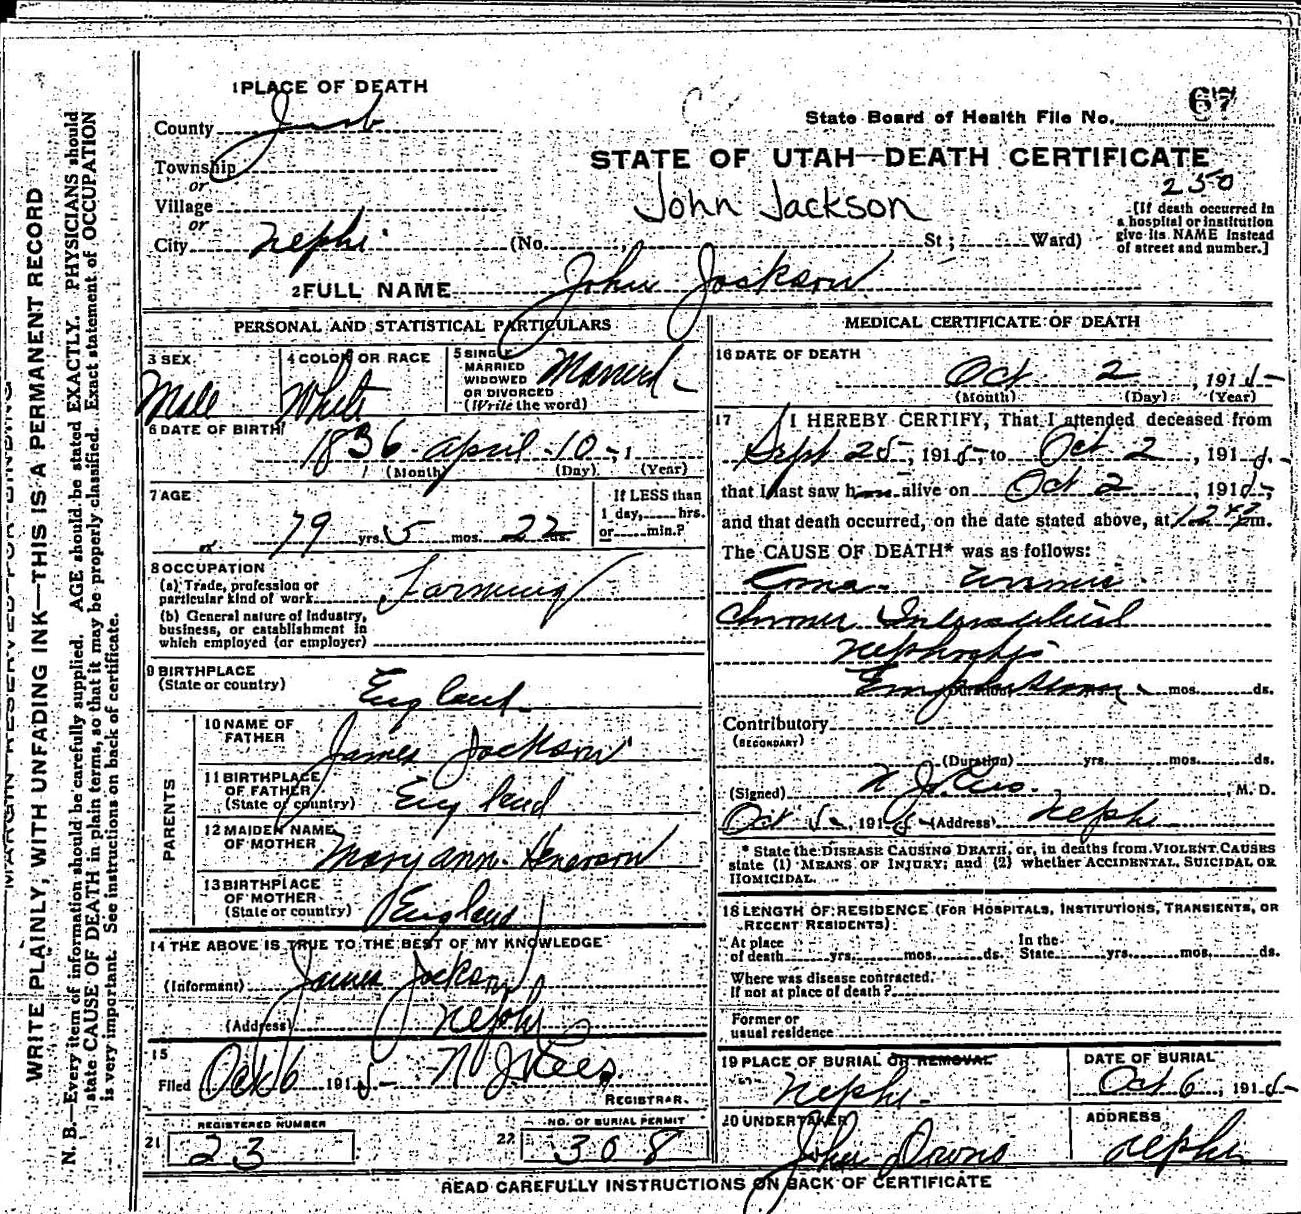 1 PLACE OF DEATH
County Juab
Township
or
Village
or
City Nephi (No. St; Ward)
State Board of Health File No. 67
STATE OF UTAH—DEATH CERTIFICATE
250
John Jackson
[If death occurred in
a hospital or institution
give its NAME instead
of street and number.]
2 FULL NAME John Jackson
PERSONAL AND STATISTICAL PARTICULARS
3 SEX
Male
4 COLOR OR RACE
White
5 SINGLE
MARRIED
WIDOWED
OR DIVORCED
(Write the word)
Married
6 DATE OF BIRTH
1836 April 10, 1
(Month) (Day) (Year)
7 AGE
79 yrs. 5 mos. 22 ds.
If LESS than
1 day, hrs.
or min.?
or
8 OCCUPATION
(a) Trade, profession or
particular kind of work Farming
(b) General nature of industry,
business, or establishment in
which employed (or employer)
9 BIRTHPLACE
(State or country)
England
PARENTS
10 NAME OF
FATHER
James Jackson
11 BIRTHPLACE
OF FATHER
(State or country) England
12 MAIDEN NAME
OF MOTHER
Mary Ann
13 BIRTHPLACE
OF MOTHER
(State or country) England
14 THE ABOVE IS TRUE TO THE BEST OF MY KNOWLEDGE
(Informant) James Jackson
(Address) Nephi
15
Filed Oct 6 1915
REGISTRAR.
REGISTERED NUMBER
21 23
NO. OF BURIAL PERMIT
22 308
MEDICAL CERTIFICATE OF DEATH
16 DATE OF DEATH
Oct 2, 1915
(Month) (Day) (Year)
17 I HEREBY CERTIFY, That I attended deceased from
Sept 25, 1915, to Oct 2, 1915.
that I last saw h alive on Oct 2, 1915,
and that death occurred, on the date stated above, at m.
The CAUSE OF DEATH* was as follows:
Coma
Interstitial
Duration mos. ds.
Contributory
(SECONDARY)
(Duration) yrs. mos. ds.
(Signed) M. D.
Oct 5, 1915 (Address) Nephi
* State the DISEASE CAUSING DEATH, or, in deaths from VIOLENT CAUSES
state (1) MEANS OF INJURY; and (2) whether ACCIDENTAL, SUICIDAL OR
HOMICIDAL.
18 LENGTH OF RESIDENCE (FOR HOSPITALS, INSTITUTIONS, TRANSIENTS, OR
RECENT RESIDENTS)
At place
of death yrs. mos. ds.
In the
State yrs. mos. ds.
Where was disease contracted.
If not at place of death?
Former or
usual residence
19 PLACE OF BURIAL OR REMOVAL
Nephi
DATE OF BURIAL
Oct 6, 1915
20 UNDERTAKER
John Downs
ADDRESS
Nephi
READ CAREFULLY INSTRUCTIONS ON BACK OF CERTIFICATE
MARGIN RESERVED FOR BINDING
WRITE PLAINLY, WITH UNFADING INK—THIS IS A PERMANENT RECORD
N. B.—Every item of information should be carefully supplied. AGE should be stated EXACTLY. PHYSICIANS should
state CAUSE OF DEATH in plain terms, so that it may be properly classified. Exact statement of OCCUPATION
is very important. See instructions on back of certificate.